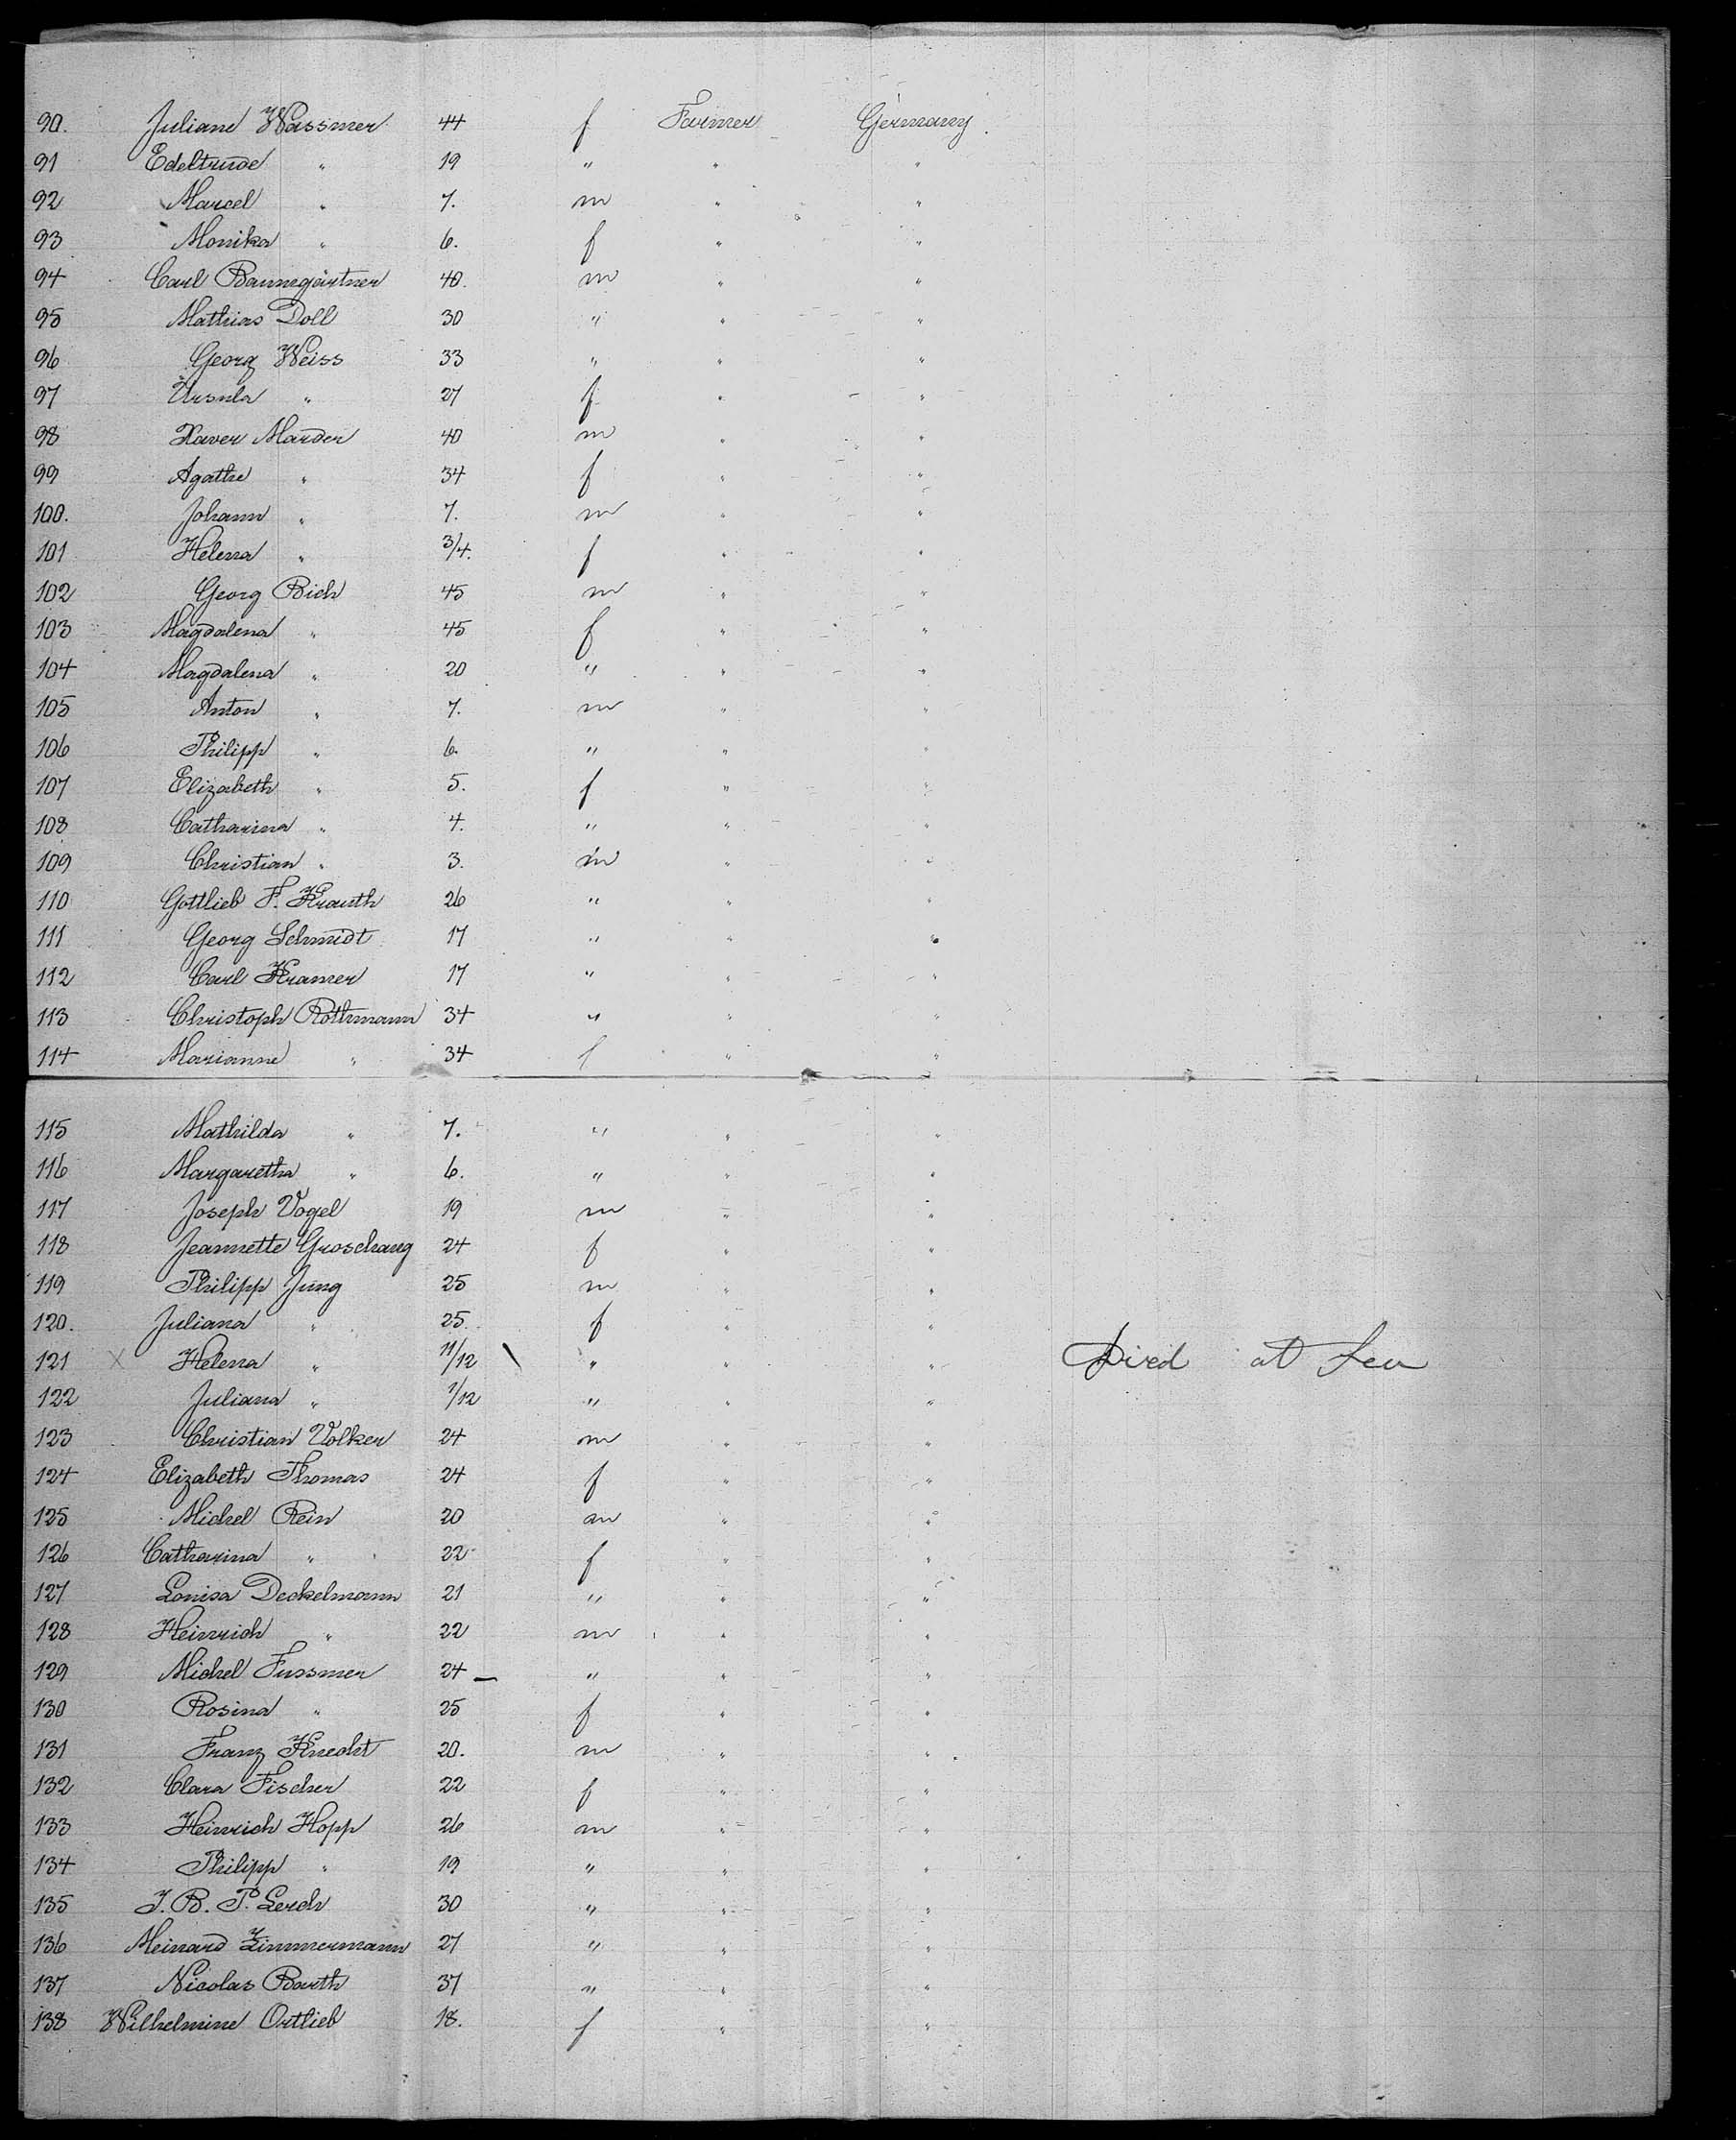 90. Juliane Wassmer 44 f Farmer Germany.
91 Edeltrude " 19 " " "
92 Marcel " 7. m " "
93 Monika " 6. f " "
94 Carl Baumgärtner 40. m " "
95 Mathias Doll 30 " " "
96 Georg Weiss 33 " " "
97 Ursula " 27 f " "
98 Xaver Marder 40 m " "
99 Agathe " 34 f " "
100. Johann " 7. m " "
101 Helena " 3/4. f " "
102 Georg Bich 45 m " "
103 Magdalena " 45 f " "
104 Magdalena " 20 " " "
105 Anton " 7. m " "
106 Philipp " 6. " " "
107 Elizabeth " 5. f " "
108 Catharina " 4. " " "
109 Christian " 3. m " "
110 Gottlieb F. Krauth 26 " " "
111 Georg Schmidt 17 " " "
112 Carl Kramer 17 " " "
113 Christoph Rothmann 34 " " "
114 Marianne " 34 f " "
115 Mathilda " 7. " " "
116 Margaretha " 6. " " "
117 Joseph Vogel 19 m " "
118 Jeannette Groschang 24 f " "
119 Philipp Jung 25 m " "
120. Juliana " 25. f " "
121 X Helena " 11/12 " " " Died at Sea
122 Juliana " 1/12 " " "
123 Christian Volker 24 m " "
124 Elizabeth Thomas 24 f " "
125 Michel Rein 20 m " "
126 Catharina " 22 f " "
127 Louisa Deckelmann 21 " " "
128 Heinrich " 22 m " "
129 Michel Fussmer 24 " " "
130 Rosina " 25 f " "
131 Franz Knecht 20. m " "
132 Clara Fischer 22 f " "
133 Heinrich Hopp 26 m " "
134 Philipp " 19 " " "
135 J. B. P. Lerch 30 " " "
136 Meinard Zimmermann 27 " " "
137 Nicolas Barth 37 " " "
138 Wilhelmine Ortlieb 18. f " "